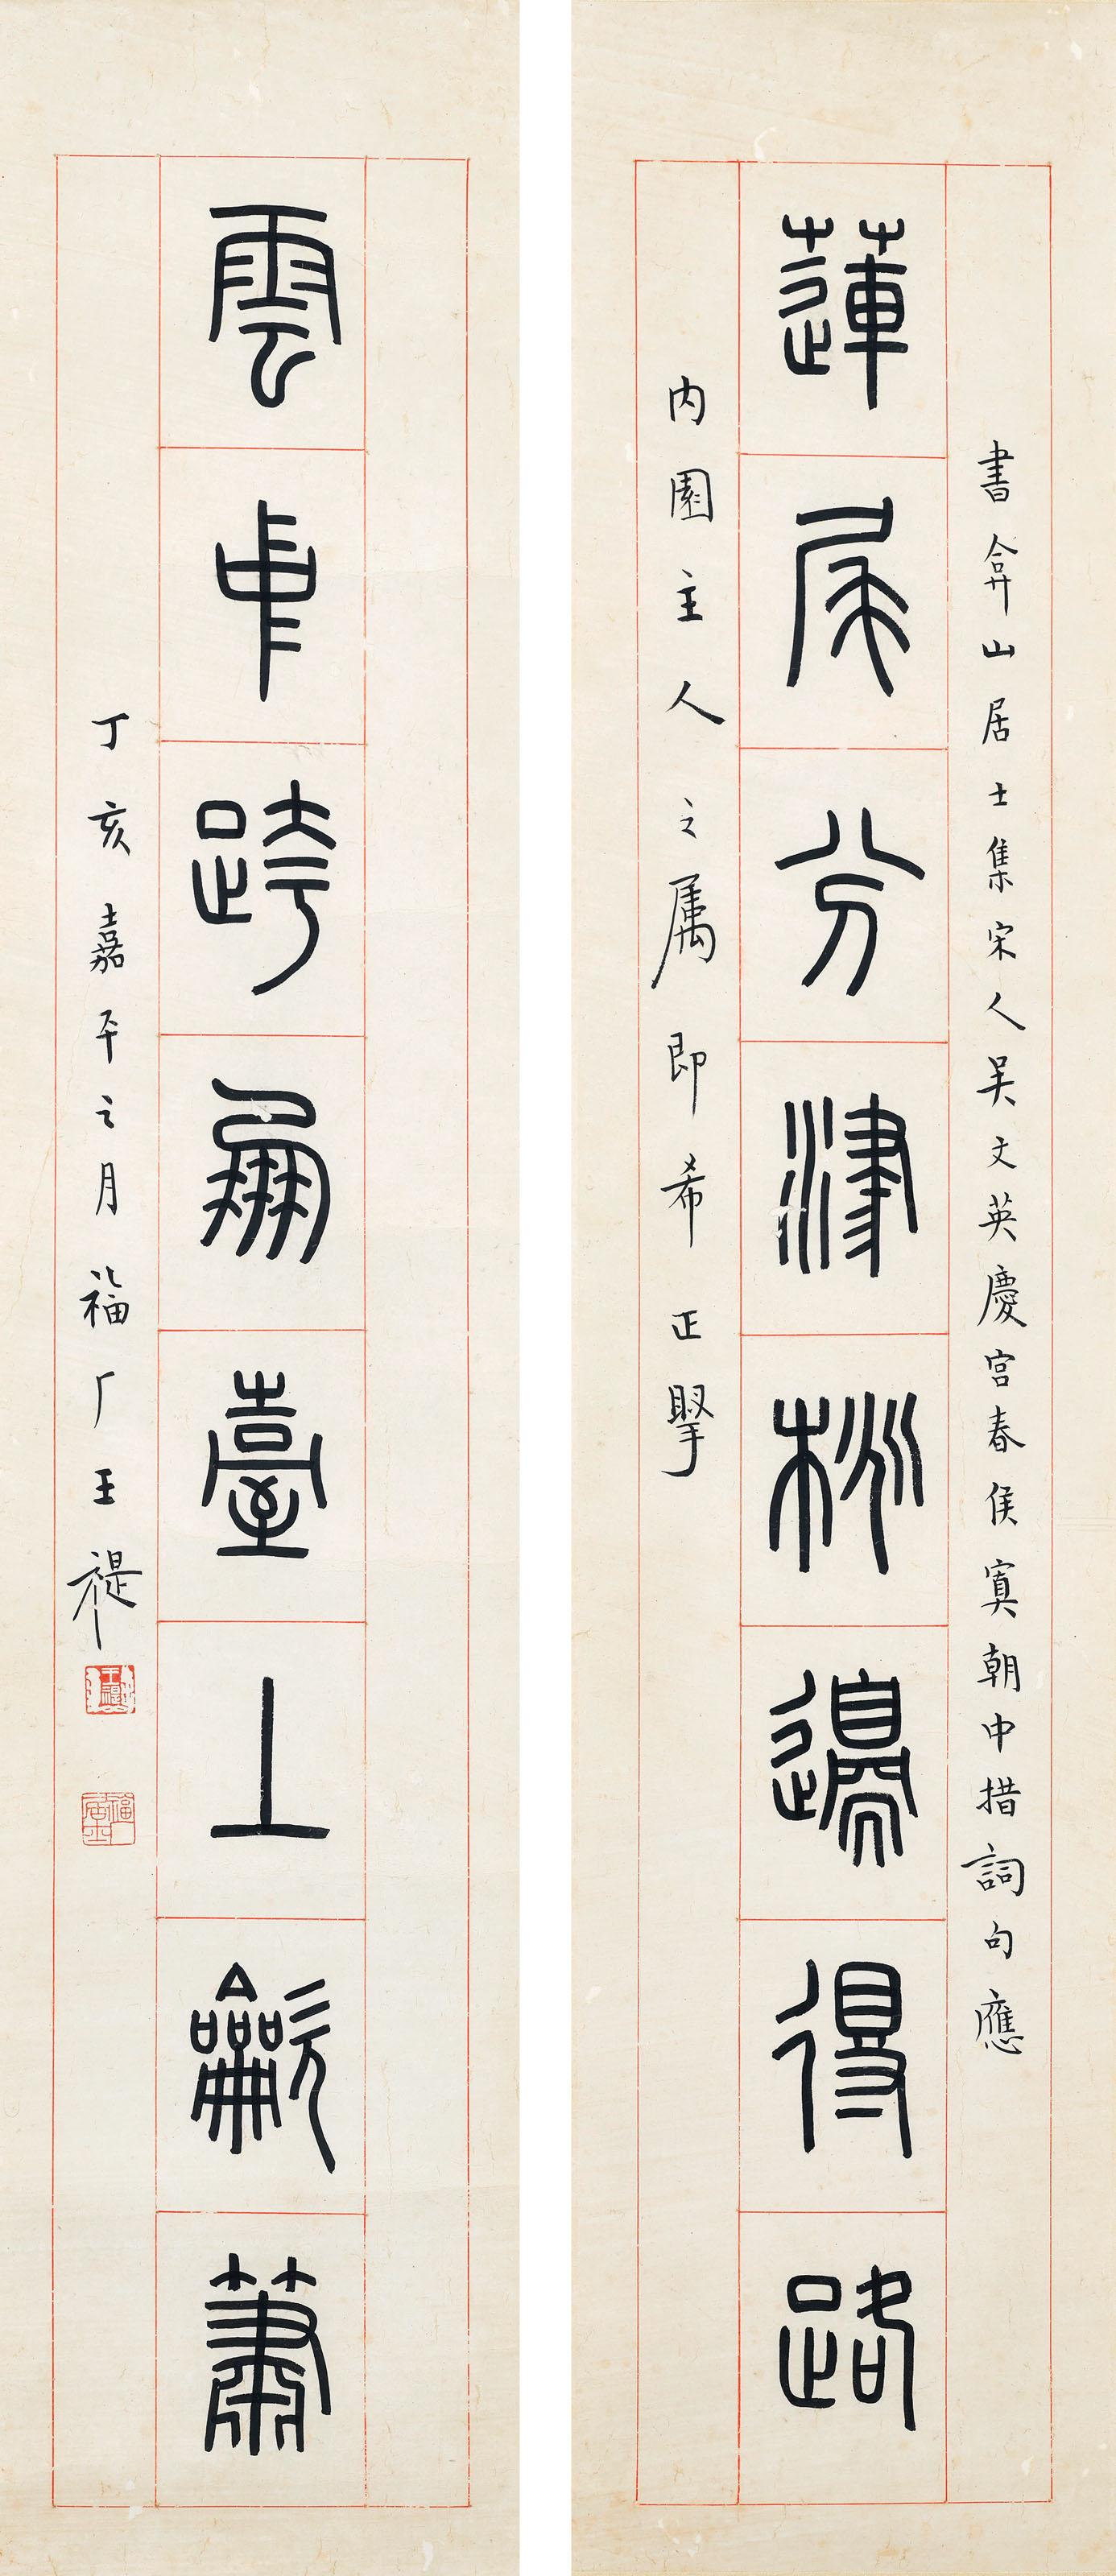 書弇山居士集宋人吳文英慶宮春侯寘朝中措詞句應
蓮尾分津桃邊得路
內園主人之屬即希正掔
雲中跨鳳臺上龡簫
丁亥嘉平之月福厂王禔
福厂居士